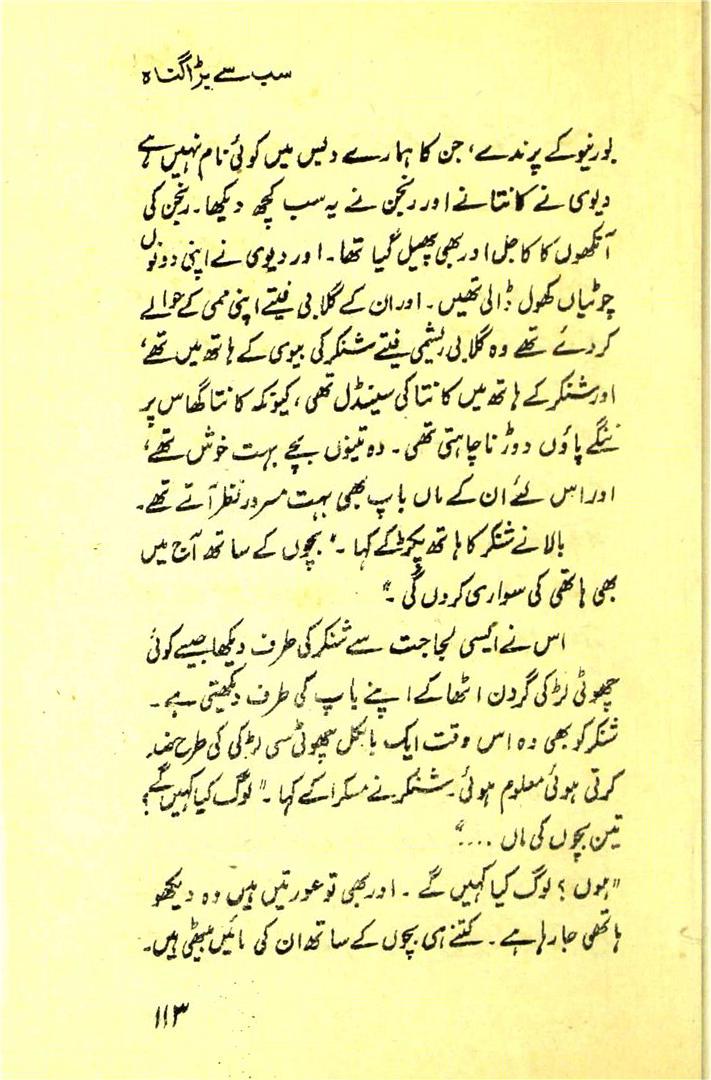 سب سے بڑا گناہ
بورنیو کے پرندے، جن کا ہمارے دیس میں کوئی نام نہیں ہے
دیوی نے کانتا نے اور رنجن نے یہ سب کچھ دیکھا۔ رنجن کی
آنکھوں کا کاجل اور بھی پھیل گیا تھا۔ اور دیوی نے اپنی دونوں
چوٹیاں کھول ڈالی تھیں۔ اور ان کے گلابی فیتے اپنی ممی کے حوالے
کر دئے تھے وہ گلابی ریشمی فیتے شنکر کی بیوی کے ہاتھ میں تھے،
اور شنکر کے ہاتھ میں کانتا کی سینڈل تھی، کیونکہ کانتا گھاس پر
ننگے پاؤں دوڑنا چاہتی تھی۔ وہ تینوں بچے بہت خوش تھے،
اور اس لئے ان کے ماں باپ بھی بہت مسرور نظر آتے تھے۔
بالا نے شنکر کا ہاتھ پکڑ کے کہا۔ "بچوں کے ساتھ آج میں
بھی ہاتھی کی سواری کروں گی۔"
اس نے ایسی لجاجت سے شنکر کی طرف دیکھا جیسے کوئی
چھوٹی لڑکی گردن اٹھا کے اپنے باپ کی طرف دیکھتی ہے۔
شنکر کو بھی وہ اس وقت ایک بالکل چھوٹی سی لڑکی کی طرح ضد
کرتی ہوئی معلوم ہوئی۔ شنکر نے مسکرا کے کہا۔ "لوگ کیا کہیں گے؟
تین بچوں کی ماں ...."
"ہوں؟ لوگ کیا کہیں گے۔ اور بھی تو عورتیں ہیں وہ دیکھو
ہاتھی جا رہا ہے۔ کتنے ہی بچوں کے ساتھ ان کی مائیں بیٹھی ہیں۔
۱۱۳